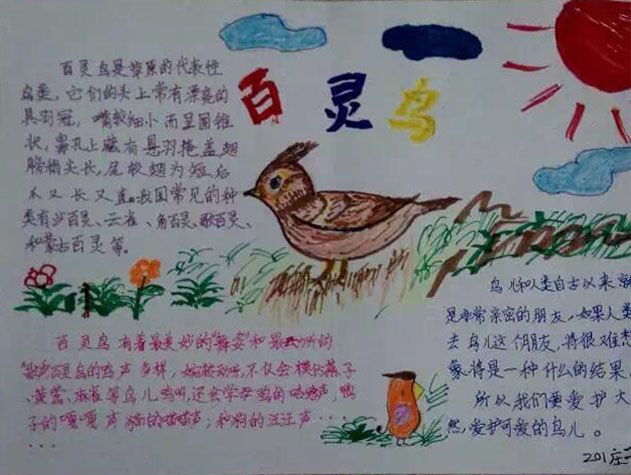 百灵鸟
百灵鸟是草原的代表性
鸟类，它们的头上常有漂亮的
具羽冠，嘴较细小而呈圆锥
状，鼻孔上藏有悬羽掩盖翅
膀稍尖长，尾较翅为短，后
爪又长又直。我国常见的种
类有沙百灵、云雀、角百灵、歌百灵、
和蒙古百灵等。
百灵鸟有着最美妙的"舞姿"和最
百灵鸟的鸣声多样，婉转动听，不仅会模仿燕子
、黄莺、麻雀等鸟儿鸣叫，还会学母鸡的咯咯声，鸭
子的嘎嘎声猫的喵喵声；和狗的汪汪声····
····
鸟儿和人类自古以来就
是非常亲密的朋友，如果人类
去鸟儿这个朋友，将很难想
象将是一种什么的结果。
所以我们要爱护大
然，爱护可爱的鸟儿。
201庄